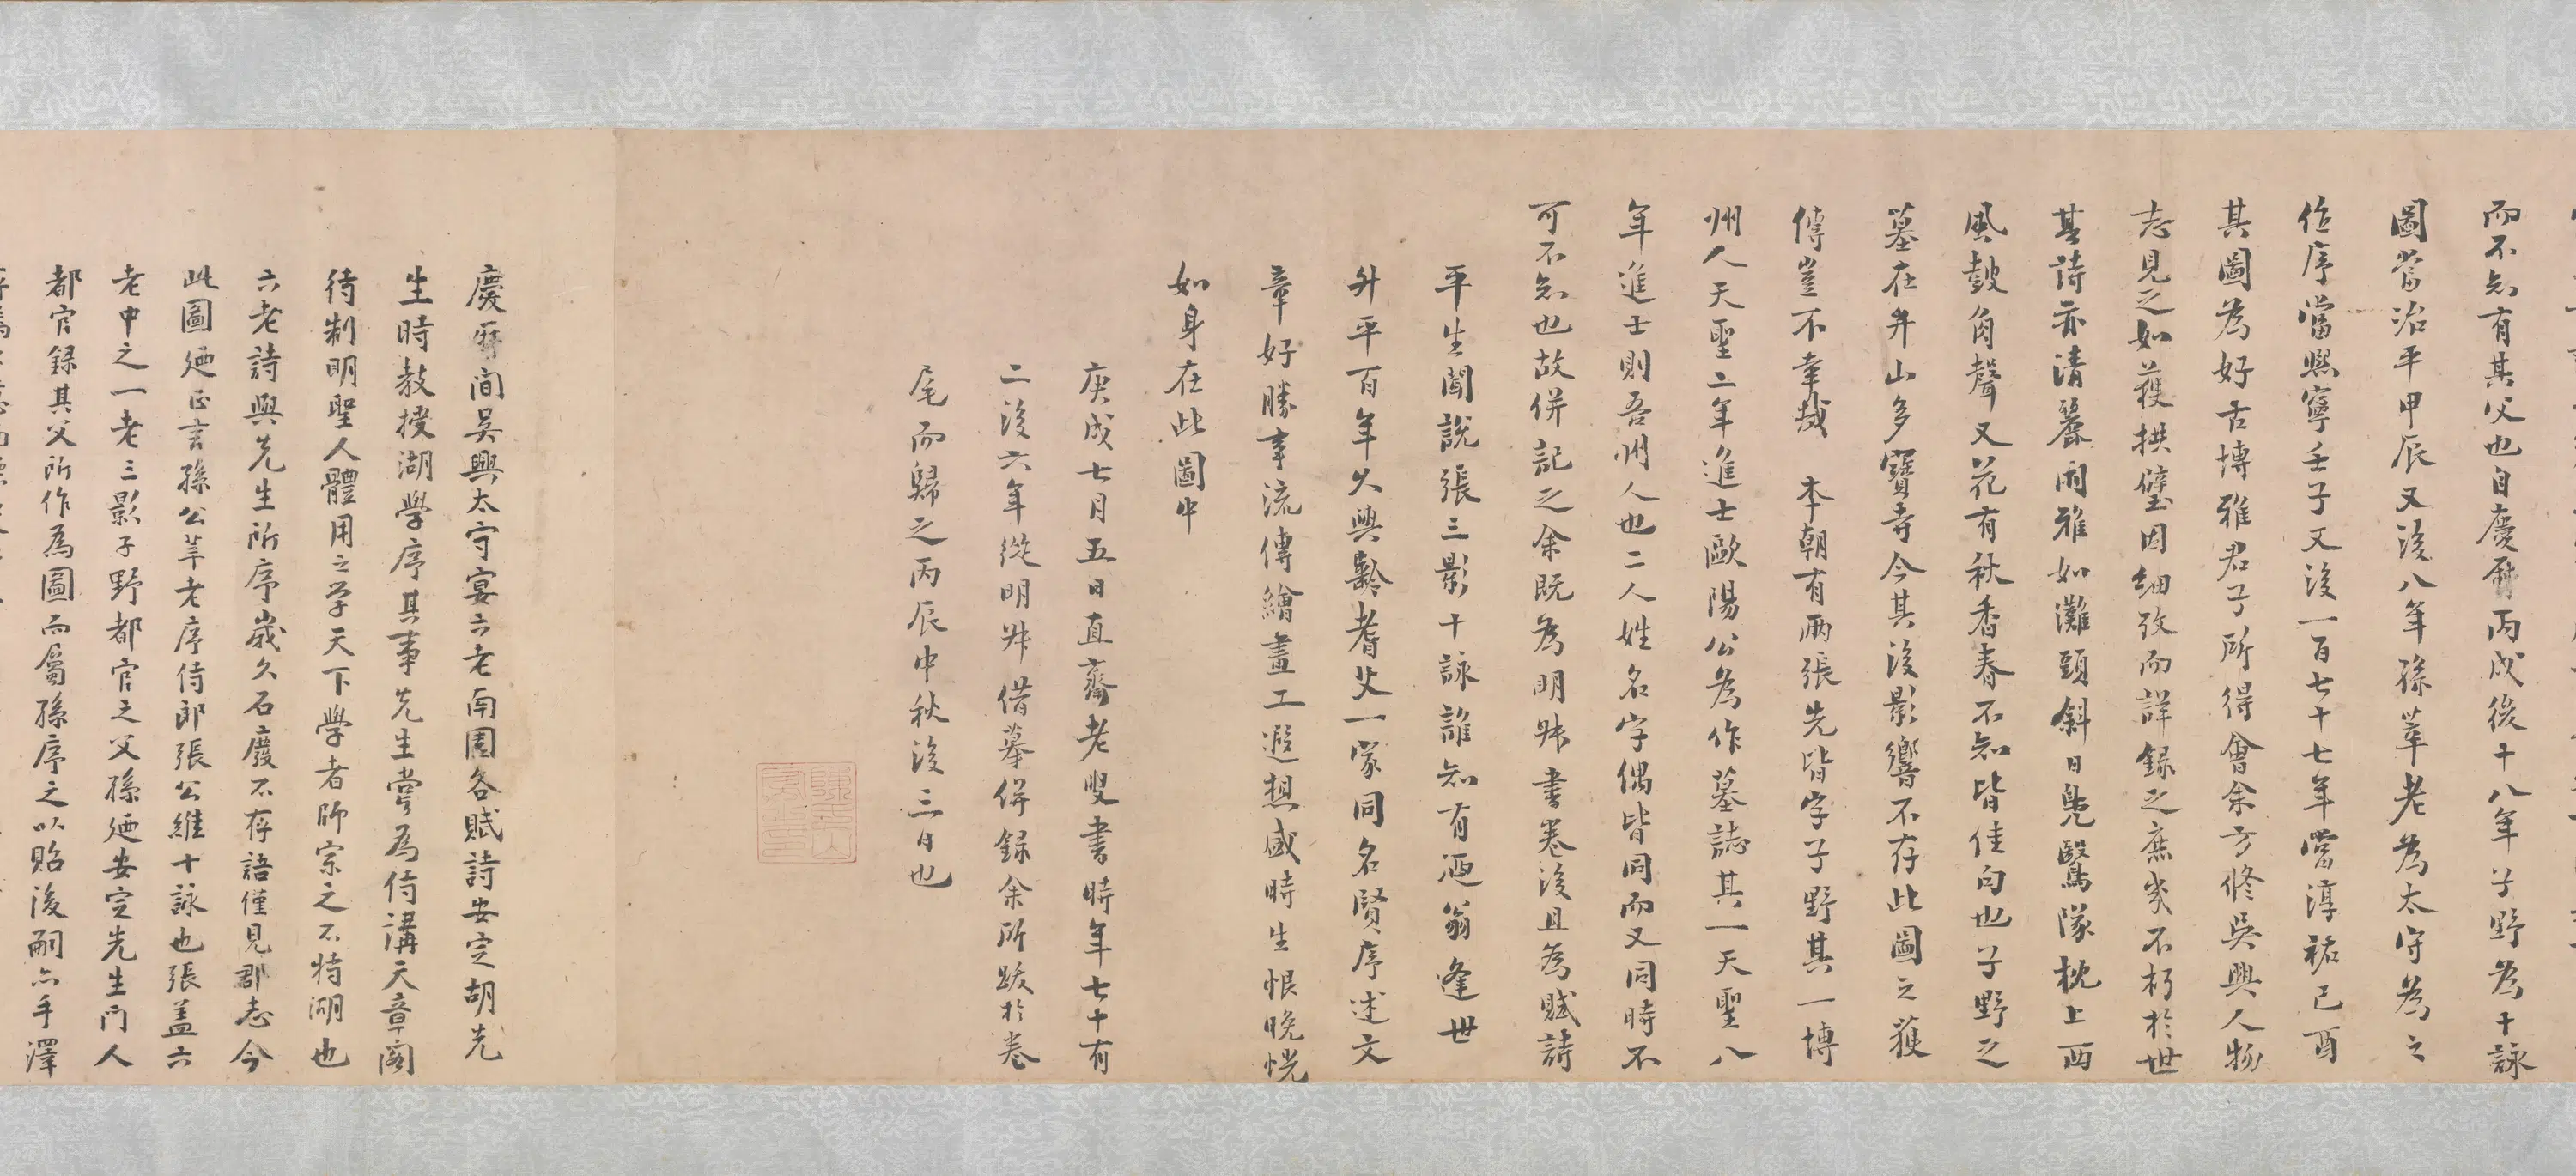 而不知有其父也自慶曆丙戌後十八年子野為十詠
圖當治平甲辰又後八年孫莘老為太守為之
作序當熙寧壬子又後一百七十七年當淳祐己酉
其圖為好古博雅君子所得會余方修吳興人物
志見之如獲拱璧因細攷而詳錄之庶幾不朽於世
其詩亦清麗閑雅如灘頭斜日鳧鷖隊枕上西
風鼓角聲又花有秋香春不知皆佳句也子野之
墓在弁山多寶寺今其後影響不存此圖之獲
傳豈不幸哉 本朝有兩張先皆字子野其一博
州人天聖二年進士歐陽公為作墓誌其一天聖八
年進士則吾州人也二人姓名字偶皆同而又同時不
可不知也故併記之余既為明叔書卷後且為賦詩
平生聞說張三影十詠誰知有迺翁逢世
升平百年久與齡耆艾一家同名賢序述文
章好勝事流傳繪畫工遐想盛時生恨晚恍
如身在此圖中
庚戌七月五日直齋老叟書時年七十有
二後六年從明叔借摹併錄余所跋於卷
尾而歸之丙辰中秋後三日也
慶曆間吳興太守宴六老南園各賦詩安定胡先
生時教授湖學序其事先生嘗為侍講天章閣
待制明聖人體用之学天下學者師宗之不特湖也
六老詩與先生所序歲久石廢不存語僅見郡志今
此圖迺正言孫公莘老序侍郎張公維十詠也張蓋六
老中之一老三影子野都官之父孫迺安定先生門人
都官録其父所作為圖而屬孫序之以貽後嗣亦手澤